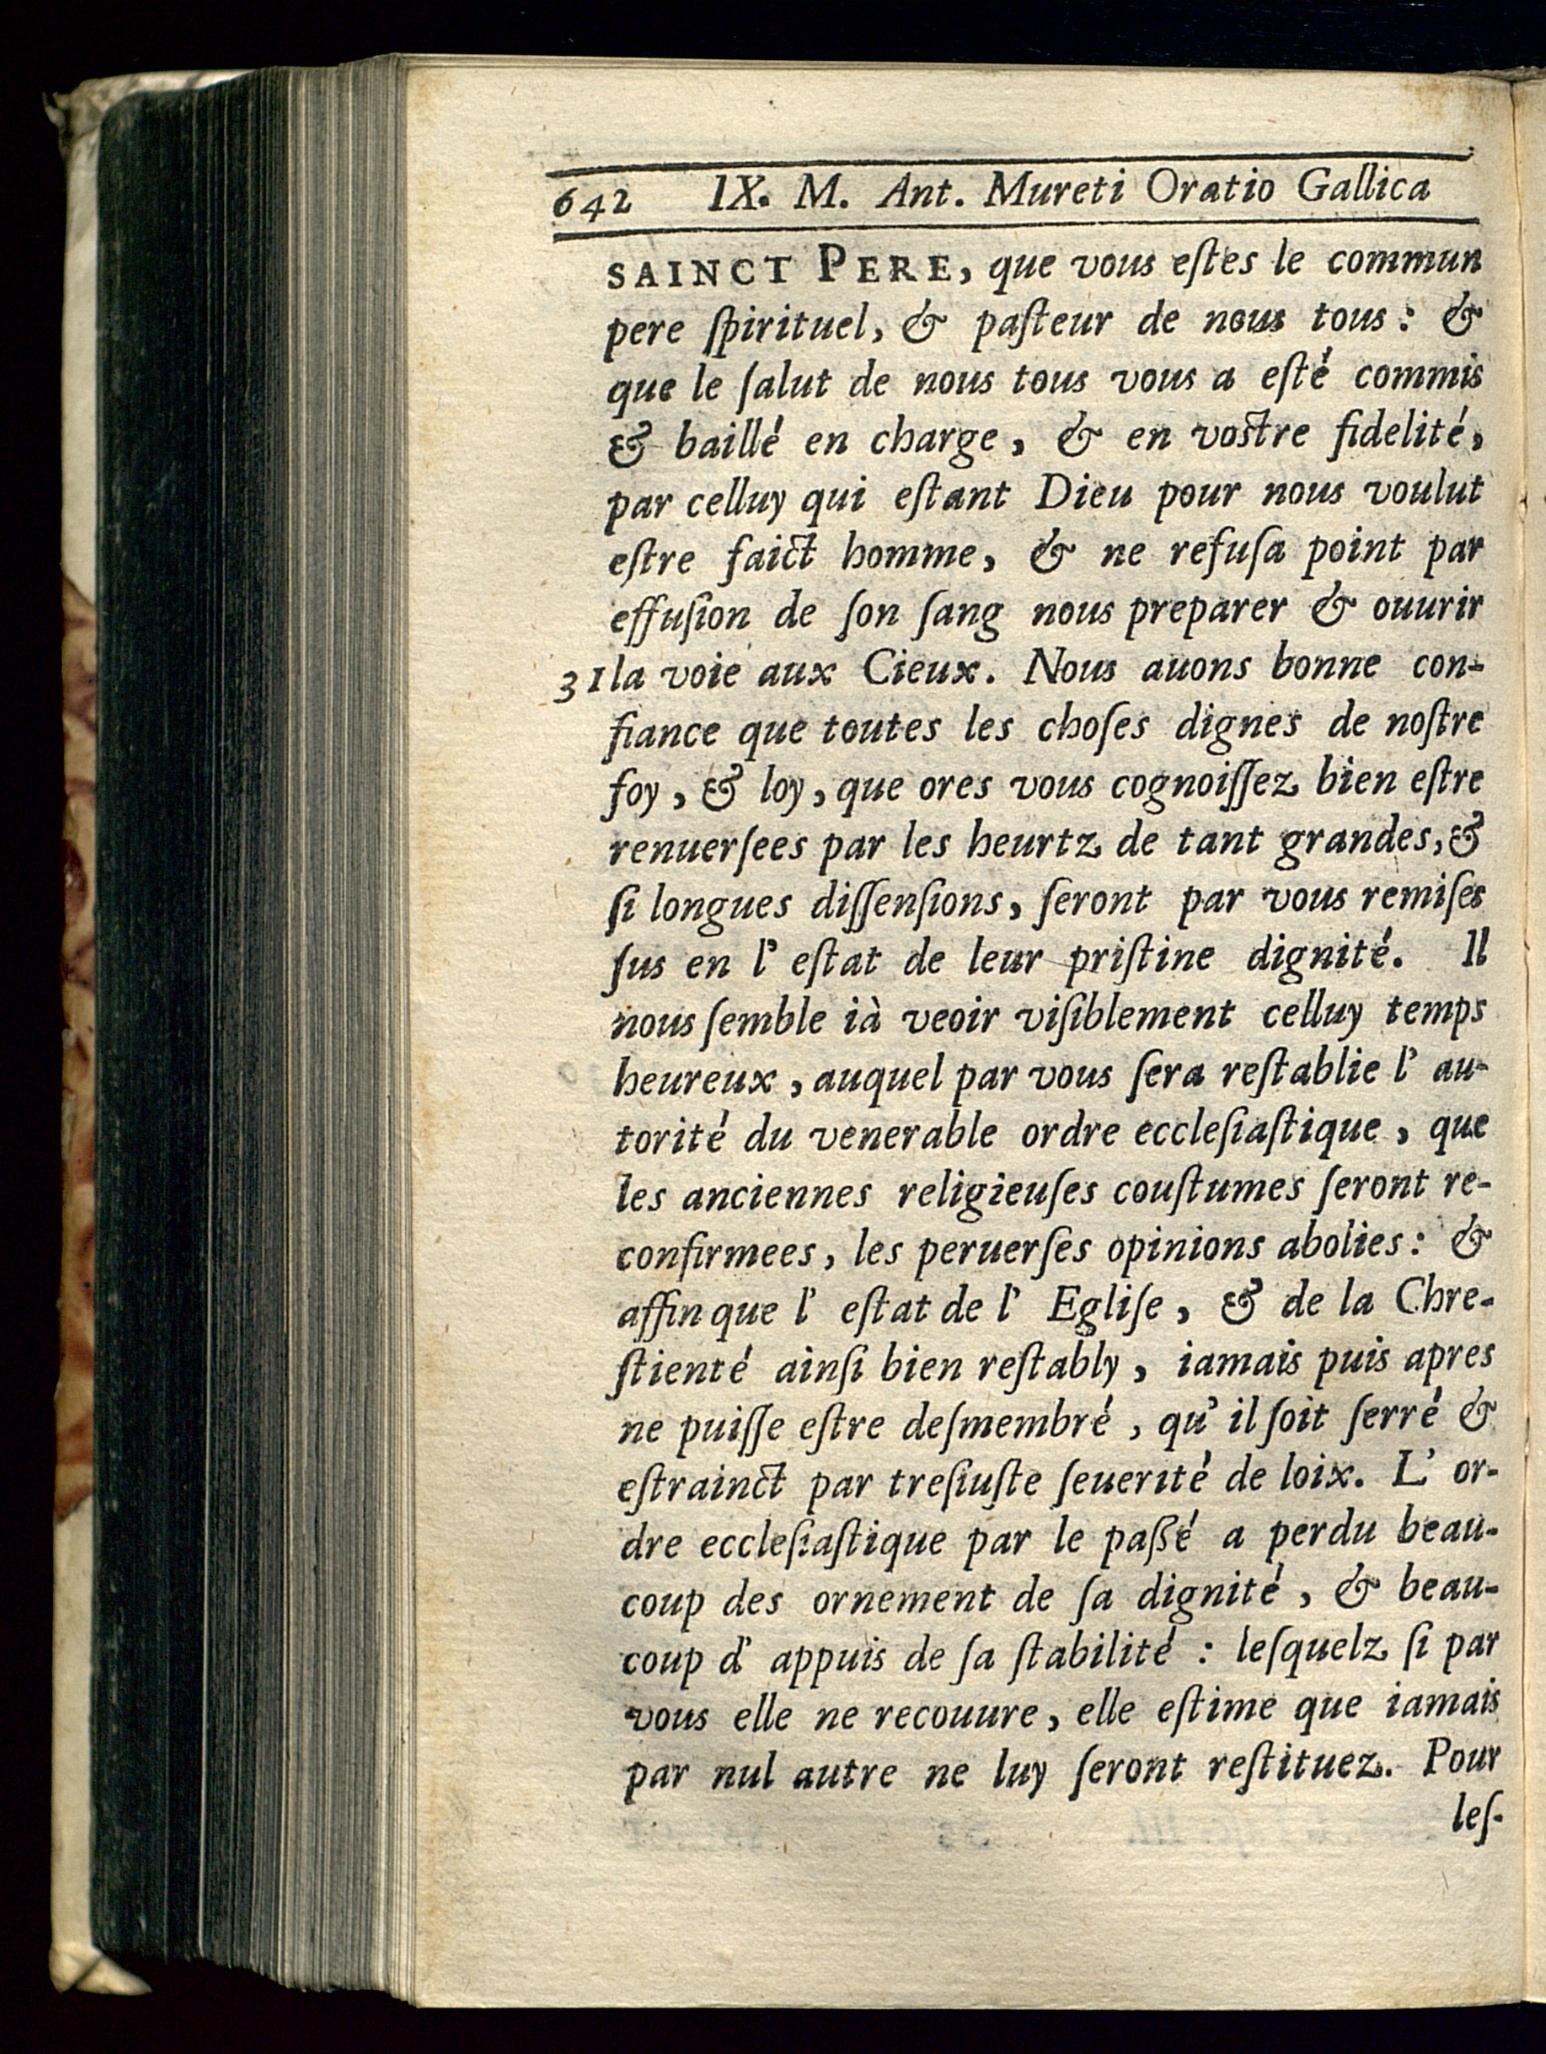 642 IX. M. Ant. Mureti Oratio Gallica
SAINCT PERE, que vous eſtes le commun
pere ſpirituel, & paſteur de nous tous: &
que le ſalut de nous tous vous a eſté commis
& baillé en charge, & en voſtre fidelité,
par celluy qui eſtant Dieu pour nous voulut
eſtre faict homme, & ne refuſa point par
effuſion de ſon ſang nous preparer & ouurir
31 la voie aux Cieux. Nous auons bonne con-
fiance que toutes les choſes dignes de noſtre
foy, & loy, que ores vous cognoiſſez bien eſtre
renuerſees par les heurtz de tant grandes, &
ſi longues diſſenſions, ſeront par vous remiſes
ſus en l' eſtat de leur priſtine dignité. Il
nous ſemble ià veoir viſiblement celluy temps
heureux, auquel par vous ſera reſtablie l' au-
torité du venerable ordre eccleſiaſtique, que
les anciennes religieuſes couſtumes ſeront re-
confirmees, les peruerſes opinions abolies: &
affin que l' eſtat de l' Egliſe, & de la Chre-
ſtienté ainſi bien reſtably, iamais puis apres
ne puiſſe eſtre deſmembré, qu' il ſoit ſerré &
eſtrainct par treſiuſte ſeuerité de loix. L' or-
dre eccleſiaſtique par le paßé a perdu beau-
coup des ornement de ſa dignité, & beau-
coup d' appuis de ſa ſtabilité: leſquelz ſi par
vous elle ne recouure, elle eſtime que iamais
par nul autre ne luy ſeront reſtituez. Pour
leſ-